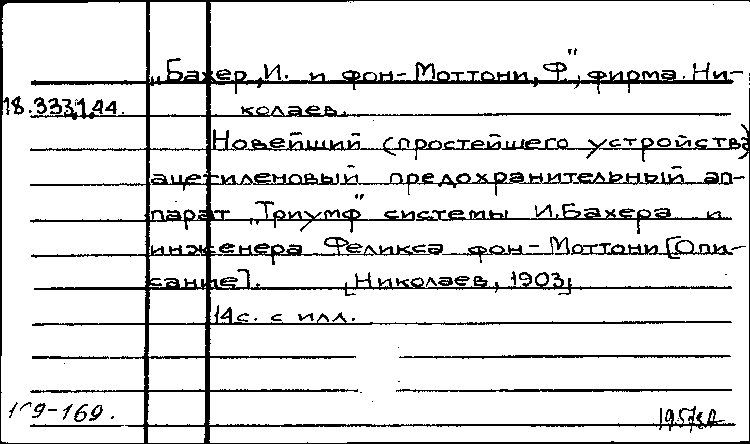 „Бахер, И. и фон-Моттони, Ф.", фирма. Ни-
18.333.1.44. колаев.
Новейший (простейшего устройства)
ацетиленовый предохранительный ап-
парат „Триумф" системы И.Бахера и
инженера Феликса фон-Моттони [Опи-
сание]. [Николаев, 1903]
14с. с илл.